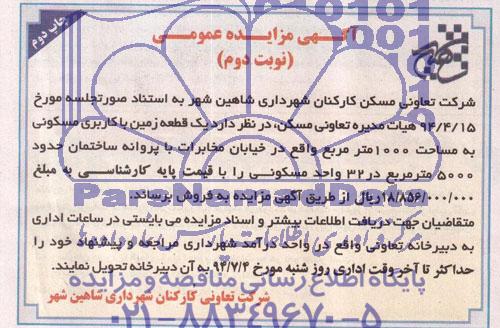 چاپ دوم
آگهی مزایده عمومی
(نوبت دوم)
شرکت تعاونی مسکن کارکنان شهرداری شاهین شهر به استناد صورتجلسه مورخ
۹۴/۴/۱۵ هیات مدیره تعاونی مسکن، در نظر دارد یک قطعه زمین با کاربری مسکونی
به مساحت ۱۰۰۰ متر مربع واقع در خیابان مخابرات با پروانه ساختمان حدود
۵۰۰۰ مترمربع در ۳۲ واحد مسکونی را با قیمت پایه کارشناسی به مبلغ
۱۸/۸۵۶/۰۰۰/۰۰۰ ریال از طریق آگهی مزایده به فروش برساند.
متقاضیان جهت دریافت اطلاعات بیشتر و اسناد مزایده می بایستی در ساعات اداری
به دبیرخانه تعاونی واقع در واحد درآمد شهرداری مراجعه و پیشنهاد خود را
حداکثر تا آخر وقت اداری روز شنبه مورخ ۹۴/۷/۴ به آن دبیرخانه تحویل نمایند.
شرکت تعاونی کارکنان شهرداری شاهین شهر
ParsNamadData
پایگاه اطلاع رسانی مناقصه و مزایده
۰۲۱-۸۸۳۴۹۶۷۰-۵